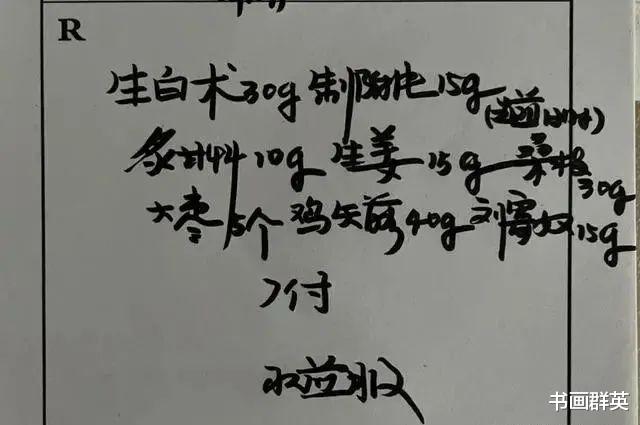 R
生白术30g 制附片15g (先煎1小时)
炙甘草10g 生姜15g 桑枝30g
大枣5个 鸡矢藤40g 刘寄奴15g
7付
水煎服
书画群英